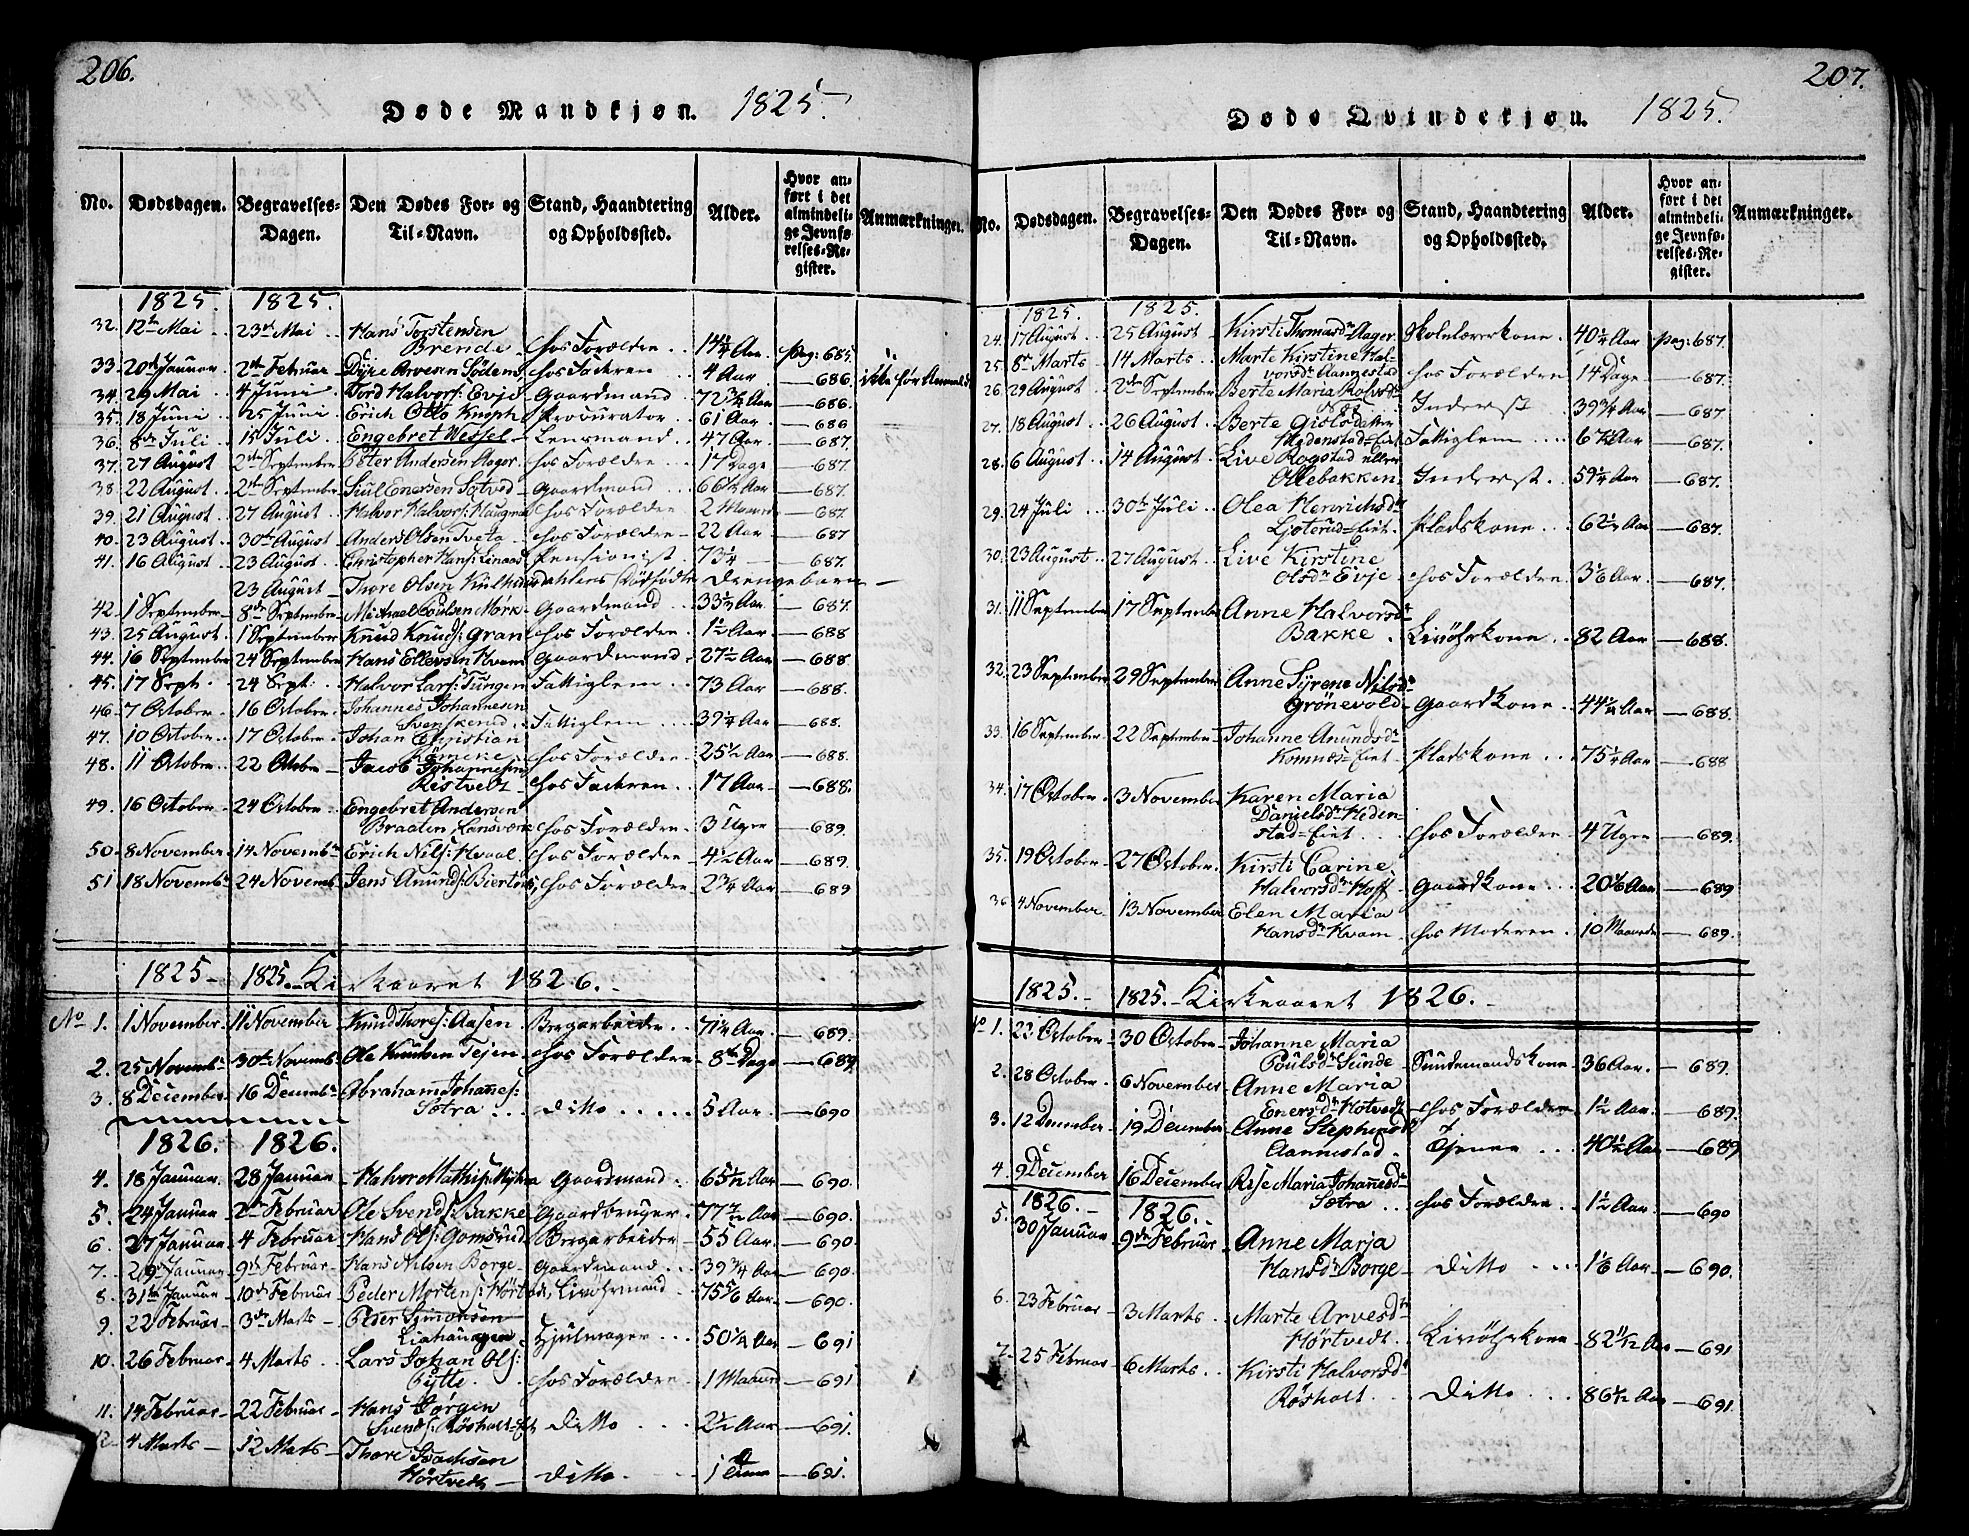 206.
Døde Mandkjøn. 1825.
No.
Dødsdagen.
Begravelses-Dagen.
Den Dødes For- og Til-Navn.
Stand, Haandtering og Opholdssted.
Alder.
Hvor anført i det almindelige Jevnførelses-Register.
Anmærkninger.
1825. 1825.
32. 12te Mai 23de Mai Hans Torstensen
Brende hos Forældre 14 Aar pag: 685.
33. 20de Januar 2den Februar Sødem hos 4 Aar 686. ikke før Anmeldt
34. 29 Mai 4 Juni Tord Halvors: Evje Gaardmand 72 Aar 686.
35. 18 Juni 25 Juni Erich Otto Knoph Procurator 61 Aar 686
36. 8de Juli 15 Juli Engebret Wessel Lensmand 47 Aar 687.
37. 27 August 2den September Peter Andersen Aager hos Forældre 17 Dage 687.
38. 22 August 2den September Enersen Sotved Gaardmand 66 Aar 687.
39. 21 August 27 August Halvor Halvors: hos Forældre 2 687
40. 23 August 30te August Anders Olsen Tveta hos Forældre 22 Aar 687
41. 16 August 23 August Christopher Hans: Pensionist 73 687.
23 August Thore Olsen dødfødte Drengebarn
42. 1 September 8de September Michael Poulsen Mørk Gaardmand 33 Aar 687.
43. 25 August 1 September Knud Knuds: Gran hos Forældre 1½ Aar 688
44. 16 September 24 September Hans Ellevsen Kvam Gaardmand 27½ Aar 688
45. 17 Sept. 24 Sept. Halvor Lars: Tungen Fattiglem 73 Aar 688.
46. 7 October 16 October Johannes Johannesen
Svenskerud Fattiglem 39¼ Aar 688.
47. 10 October 17 October Johan Christian
hos Forældre 25½ Aar 688
48. 11 October 22 October Jacob Johannesen
Ristvedt hos 17 Aar 688.
49. 16 October 24 October Engebret Andersen
Braaten hos Forældre 3 Uger 689.
50. 8 November 14 Novembr Erich Nils: Hvaal hos Forældre 4½ Aar 689.
51 18 Novembr 24 Novembr Jens Anunds: Biertnes, hos Forældre 2¾ Aar 689
1825 1825. Kirkeaaret 1826.
No 1. 1 November 11 November Knud Thores: Aasen Bergarbeider 71¼ Aar 689.
2. 25 Novembr 30te Novembr Ole Knudsen Tejen hos Forældre 8te Dage 689
3. 8 December 16 Decembr Abraham Johanes:
Sotra ditto 5 Aar 690
1826. 1826.
4. 18 Januar 28 Januar Halvor Mathis: Gaardmand 65½ Aar 690.
5. 24 Januar 2den Februar Ole Svends: Bakke Gaardbruger 77 Aar 690.
6. 27 Januar 4 Februar Hans Ols: Gomsrud Bergarbeider 55 Aar 690.
7. 29de Januar 9de Februar Hans Nilsen Borge Gaardmand 39¾ Aar 690.
8. 31te Januar 10de Februar Peder Mortens: 75 Aar 690.
9. 22 Februar 3de Marts Peder Symonsen
Liahaugen Hjulmager 50¼ Aar 691
10. 26 Februar 4 Marts Lars Johan Ols:
Pytte hos Forældre 1 Maaned 691
11. 14 Februar 22 Februar Hans Jørgen
Svends: Røsholt-Eiet ditto 2½ Aar 691.
12. 4 Marts 12 Marts Thore Isachsen
Hørtvedt ditto 1 691.
207.
Døde Qvindekjøn. 1825.
No.
Dødsdagen.
Begravelses-Dagen.
Den Dødes For- og Til-Navn.
Stand, Haandtering og Opholdssted.
Alder.
Hvor anført i det almindelige Jevnførelses-Register.
Anmærkninger.
1825. 1825.
24. 17 August 25 August Kirsti Thomasdr Aager Skolelærerkone 40½ Aar pag: 687.
25. 8de Marts 14 Marts Marte Kirstine Halvorsdr Aannestad hos Forældre 14 Dage 687.
26. 29 August 2den September Berte Maria
Inderst 39¾ Aar 687.
27. 18 August 26 August Berte
Eiet Fattiglem 67 Aar 687.
28. 6 August 14 August Live Rogstad eller
Ollebakken Inderst 59¼ Aar 687.
29. 24 Juli 30te Juli Olea Henrichsdr
Ljøterud-Eiet Pladskone 62½ Aar 687.
30. 23 August 27 August Live Kirstine
Olsdr Evje hos Forældre 3 Aar 687.
31. 11 September 17 September Anne Halvorsdr
Bakke 82 Aar 688.
32. 23 September 29 September Anne Syrene Nilsdr
Grønevold Gaardkone 44 Aar 688.
33. 16 September 22 September Johanne Anundsdr
Komnæs-Eiet Pladskone 75¼ Aar 688
34. 17 October 3 November Karen Maria
Danielsdr Hedenstad-Eiet hos Forældre 4 Uger 689.
35. 19 October 27 October Kirsti Carine
Halvorsdr Hoff Gaardkone 20 Aar 689
36. 4 November 13 November Elen Maria
Hansdr Kvam hos Moderen 10 Maaneder 689.
1825. 1825. Kirkeaaret 1826.
No 1. 22 October 30 October Johanne Maria
Poulsdr Sunde 36 Aar 689.
2. 28 October 6 November Anne Maria
Enersdr Hotvedt hos Forældre 1½ Aar 689.
3. 12 December 19 December Anne Stephensdr
Aannestad Tjener 40½ Aar 689
4. 9 December 16 December Maria Johanesdr
Sotra hos Forældre 1½ Aar 690
1826. 1826.
5. 30 Januar 9de Februar Anne Marja
Hansdr Borge ditto 1 Aar 690.
6. 23 Februar 3 Marts Marte Arvesdr
Hørtvedt 82 Aar 691
7. 25 Februar 6 Marts Kirsti Halvorsdr
Røsholt ditto 86½ Aar 691.